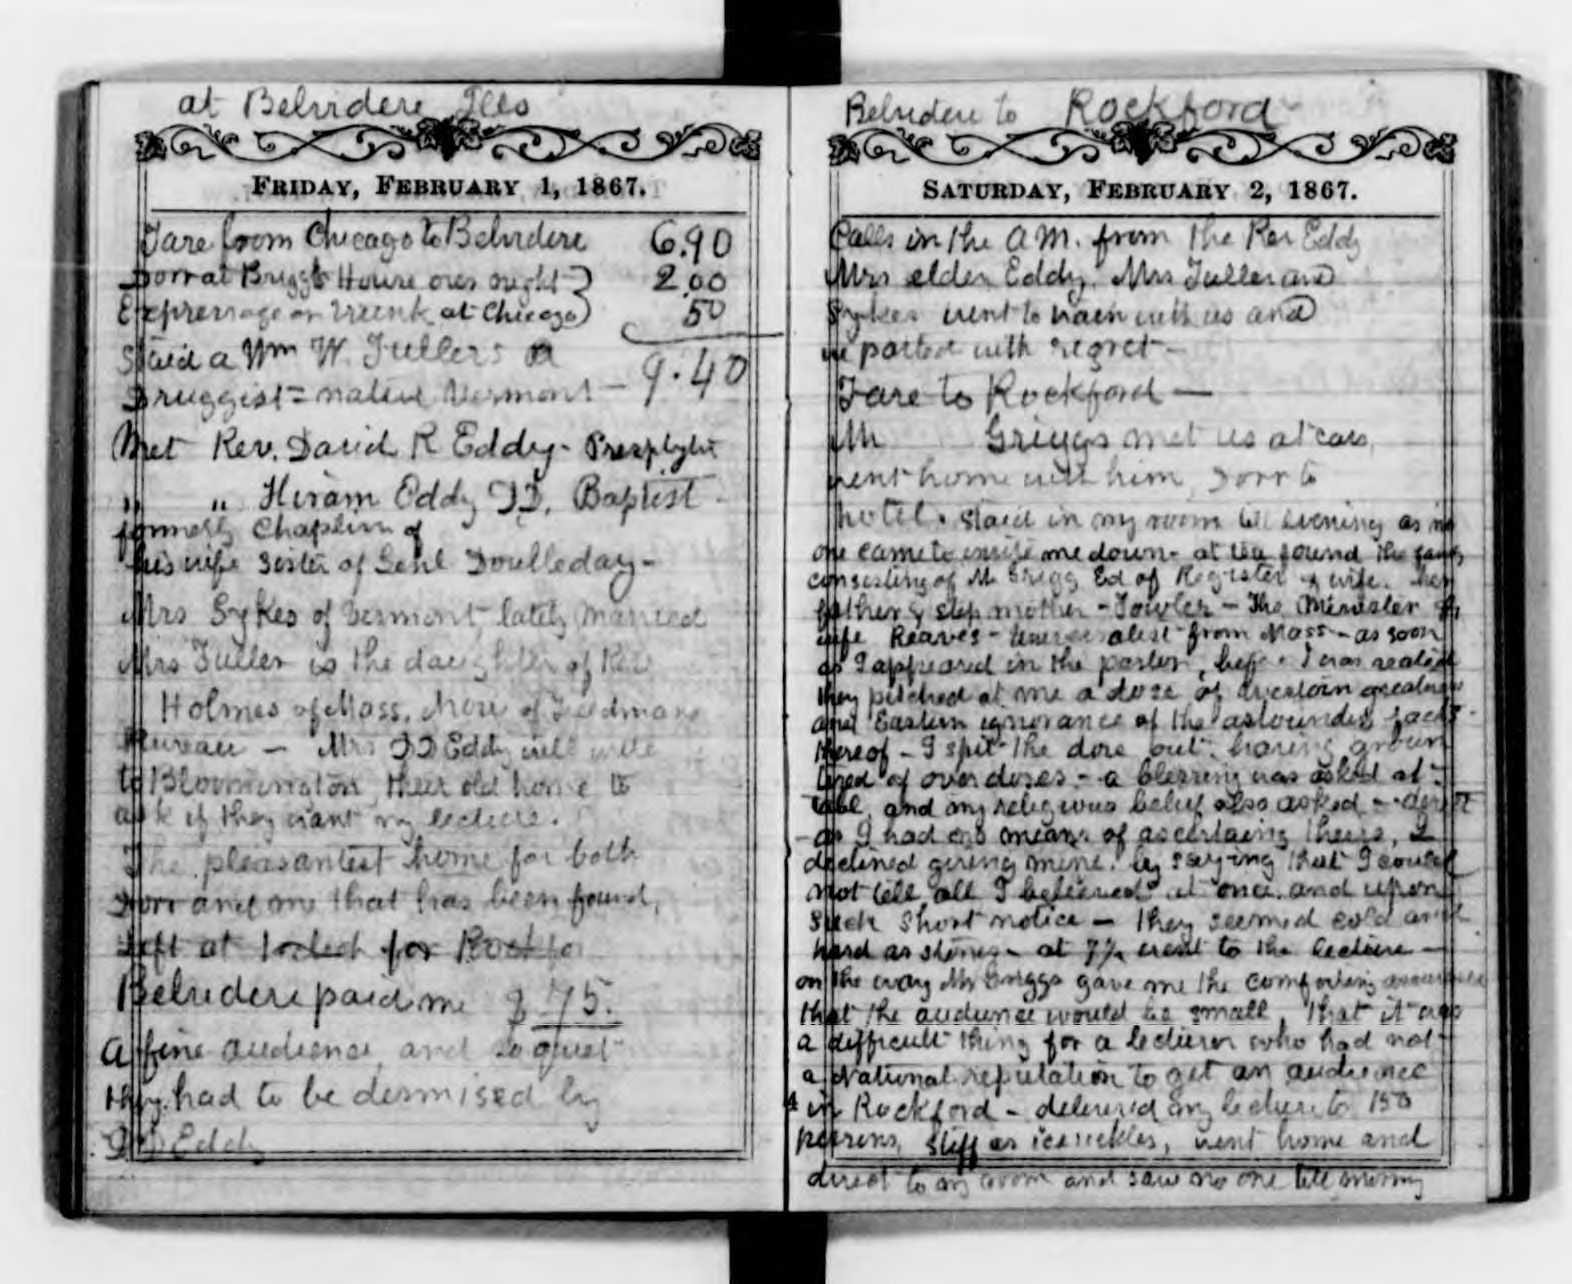 at Belvidere Ills
FRIDAY, FEBRUARY 1, 1867.
Fare from Chicago to Belvidere 6.90
Dorr at Briggs House over night 2.00
Expressage on trunk at Chicago 50
Staid a Wm W. Fullers a 9.40
Druggist = native Vermont -
Met Rev. David R Eddy - Presbyt
" " Hiram Eddy DD, Baptist -
formerly Chaplin of
his wife sister of Genl Doulleday -
Mrs Sykes of Vermont, lately married
Mrs Fuller is the daughter of Rev
Holmes of Mass, now of Freedmans
Bureau - Mrs DD Eddy will write
to Bloomington, their old home to
ask if they want my lecture.
The pleasantest home for both
Dorr and me that has been found,
Left at for Rockfor
Belvidere paid me $ 75.
A fine audience, and so quiet
they had to be dismised by
Eddy
Belvidere to Rockford
SATURDAY, FEBRUARY 2, 1867.
Calls in the A M. from the Rev Eddy
Mrs elder Eddy, Mrs Fuller and
Sykes went to train with us and
we parted with regret -
Fare to Rockford -
Mr Griggs met us at cars,
went home with him, Dorr to
hotel. Staid in my room till evening as no
one came to invite me down - at tea found the family
consisting of Mr Grigg Ed of Register & wife. her
father & step mother - Fowler - The Minister &
wife Reaves - Universalist from Mass - as soon
as I appeared in the parlor, before I was seated
they pitched at me a dose of western greatness
and Eastern ignorance of the astounding facts
thereof - I spit the dose out, having grown
tired of over doses - a blessing was asked at
table, and my religious belief also asked -
- as I had no means of ascertaing theirs, I
declined giving mine. by saying that I could
not tell all I believed at once and upon
such short notice - they seemed cold and
hard as stones - at 7½ went to the lecture -
on the way Mr Griggs gave me the comforting assurance
that the audience would be small, that it was
a difficult thing for a lecturer who had not
a National reputation to get an audience
in Rockford - delivered my lecture to 150
persons, stiff as iceickles, went home and
direct to my room and saw no one till morning